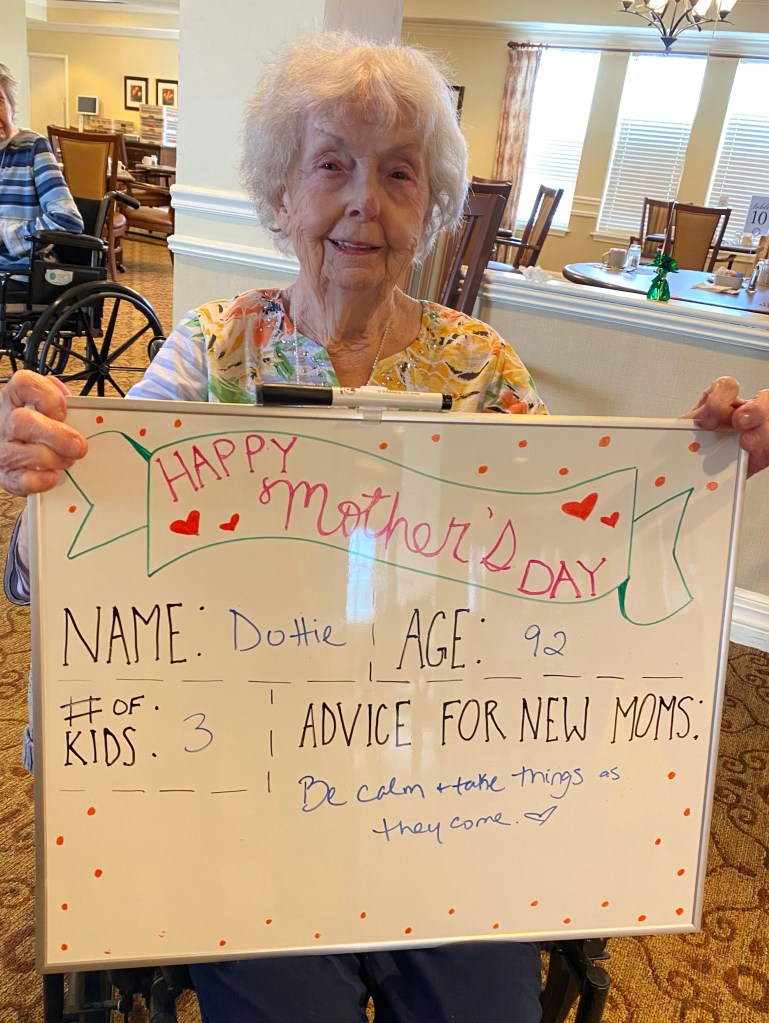 HAPPY
Mother's
DAY
NAME: Dottie
AGE: 92
# OF KIDS: 3
ADVICE FOR NEW MOMS:
Be calm + take things as
they come.
10